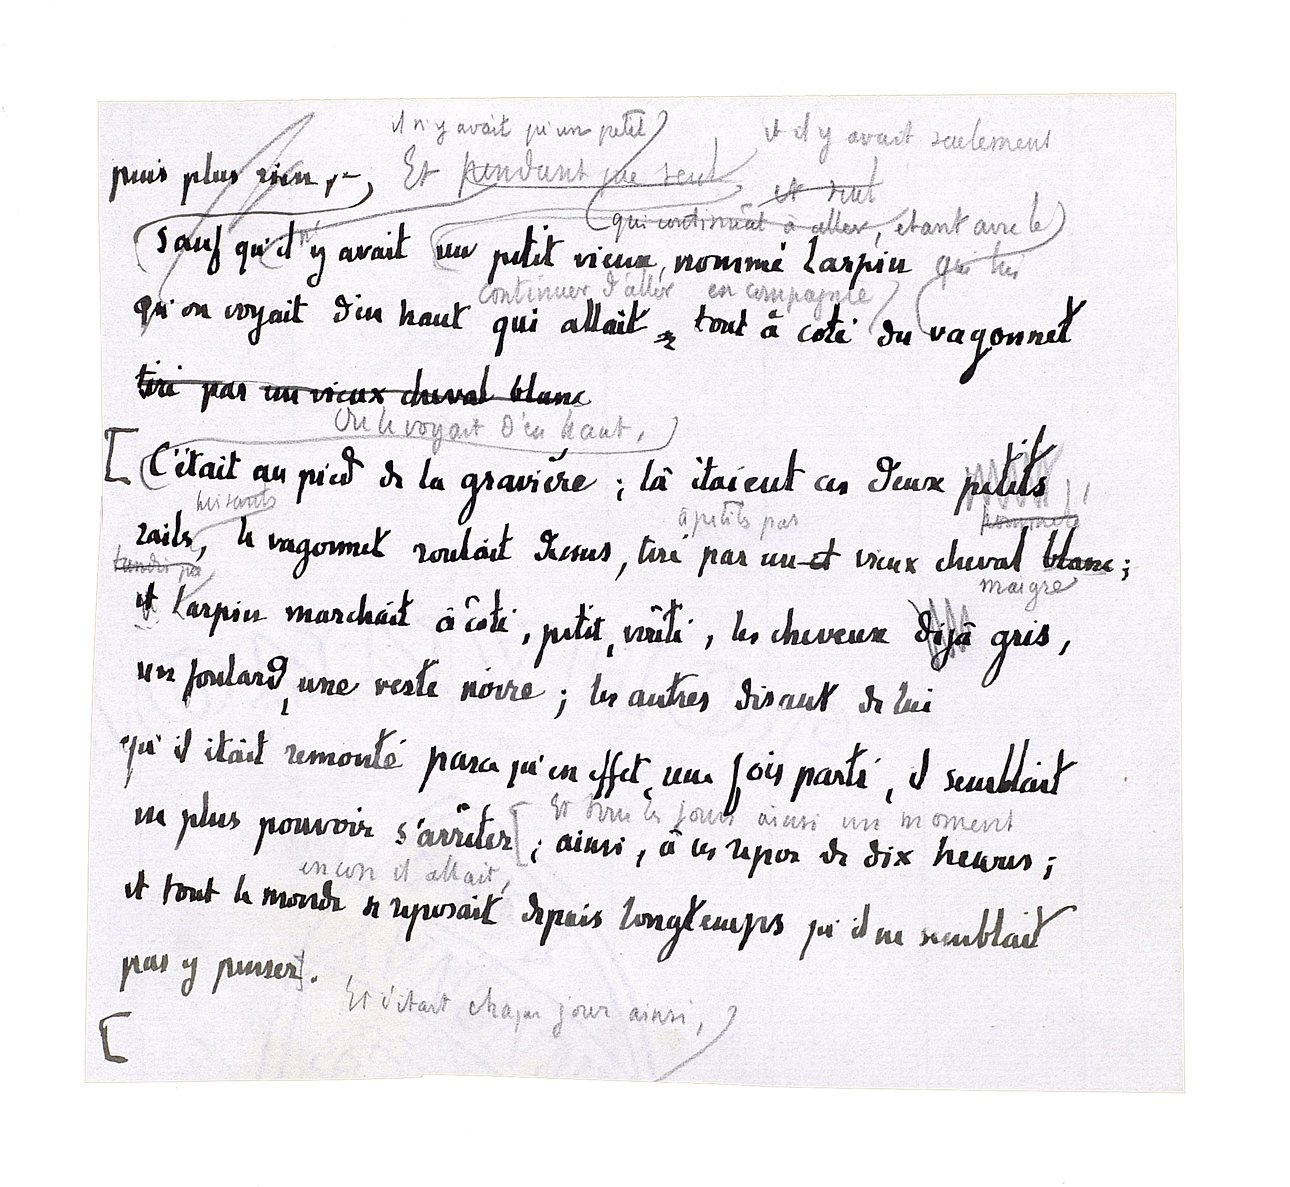 il n'y avait qu'un petit
et il y avait seulement
puis plus rien, Et pendant que seul
et seul
qui continuât à aller, étant avec le
Sauf qu'il n'y avait un petit vieux, nommé Larpin que lui
continuer d'aller en compagnie
qu'on voyait d'en haut qui allait tout à côté du vagonnet
tiré par un vieux cheval blanc
On le voyait d'en haut,
[C'était au pied de la gravière ; là étaient ces deux petits
luisants
à petits pas
pommelé
rails, le vagonnet roulait dessus, tiré par un vieux cheval blanc ;
tandis que
maigre
et Larpin marchait à côté, petit, voûté, les cheveux déjà gris,
un foulard, une veste noire ; les autres disant de lui
qu'il était remonté parce qu'en effet, une fois parti, il semblait
Et tous les jours ainsi un moment
ne plus pouvoir s'arrêter [; ainsi, à ces repos de dix heures ;
encore il allait,
et tout le monde se reposait depuis longtemps qu'il ne semblait
pas y penser].
Et c'était chaque jour ainsi,
[